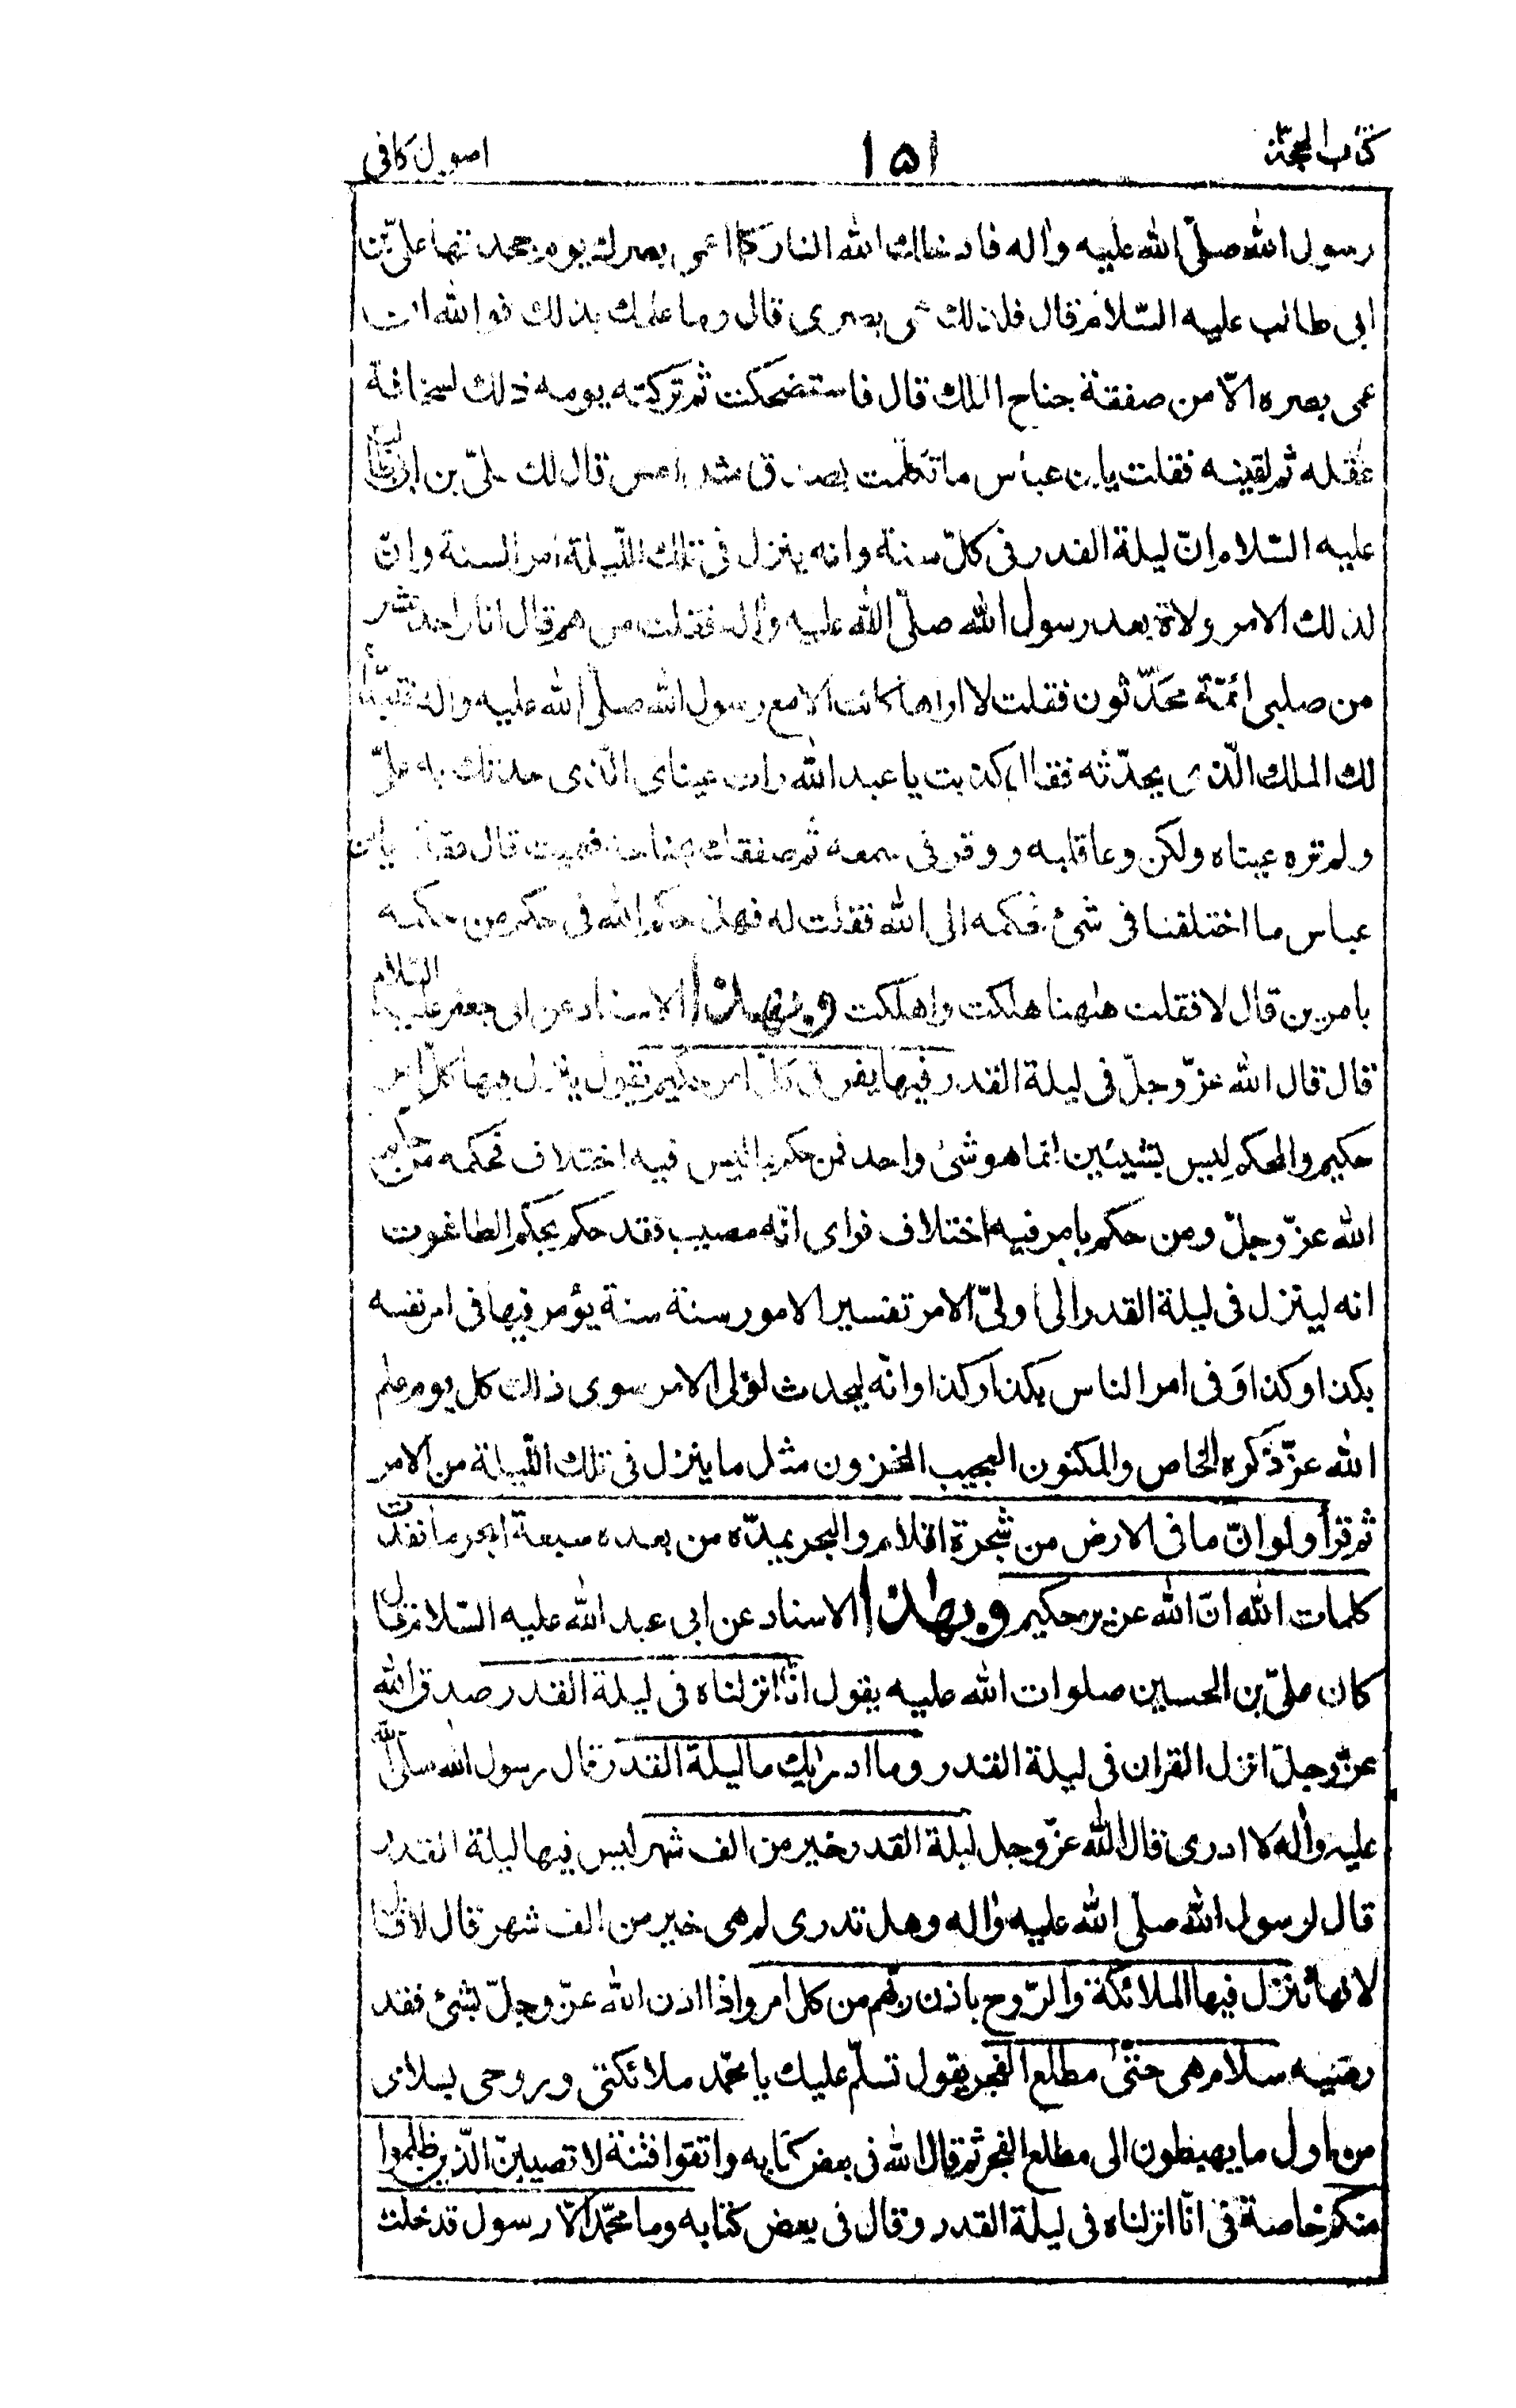 كتاب الحجّة
١٥١
اصول كافى
رسول الله صلّى الله عليه واٰله فادخلك الله النار كما اعمى بصرك يوم جحدتها علىّ بن
ابى طالب عليه السّلام قال فلذلك عمى بصرى قال وما علمك بذلك فوالله ان
عمى بصره الّا من صفقة جناح الملك قال فاستضحكت ثم تركته يومه ذلك لسخافة
عقله ثم لقيته فقلت يابن عباس ما تكلّمت بصدق مثل امس قال لك علىّ بن ابى طالب
عليه السّلام انّ ليلة القدر فى كلّ سنة وانه ينزل فى تلك اللّيلة امر السنة وانّ
لذلك الامر ولاة بعد رسول الله صلّى الله عليه واٰله فقلت من هم قال انا واحد عشر
من صلبى ائمّة محدّثون فقلت لا اراها كانت الا مع رسول الله صلّى الله عليه واله فتبدّا
لك الملك الّذى يحدّثه فقال كذبت يا عبد الله رات عيناى الّذى حدثك به علىّ
ولم تره عيناه ولكن وعا قلبه ووقر فى سمعه ثم صفقك بجناحه فعميت قال فقال يابن
عباس ما اختلفنا فى شئ فحكمه الى الله فقلت له فهل حكم الله فى حكم من حكمه
بامرين قال لا فقلت هٰهنا هلكت واهلكت وبهذا الاسناد عن ابى جعفر عليه السّلام
قال قال الله عزّ وجلّ فى ليلة القدر فيها يفرق كلّ امر حكيم يقول ينزل فيها كلّ امر
حكيم والمحكم ليس بشيئين انما هو شئ واحد فمن حكم بما ليس فيه اختلاف فحكمه من حكم
الله عزّ وجلّ ومن حكم بامر فيه اختلاف فراى انّه مصيب فقد حكم بحكم الطاغوت
انه لينزل فى ليلة القدر الى ولىّ الامر تفسير الامور سنة سنة يؤمر فيها فى امر نفسه
بكذا وكذا وَفى امر الناس بكذا وكذا وانّه ليحدث لولى الامر سوى ذلك كل يوم علم
الله عزّ ذكره الخاص والمكنون العجيب المخزون مثل ما ينزل فى تلك اللّيلة من الامر
ثم قرأ ولو انّ ما فى الارض من شجرة اقلام والبحر يمدّه من بعده سبعة ابحر ما نفدت
كلمات الله انّ الله عزيز حكيم وبهٰذا الاسناد عن ابى عبد الله عليه السّلام قال
كان علىّ بن الحسين صلوات الله عليه يقول انّا انزلناه فى ليلة القدر صدق الله
عزّ وجلّ انزل القران فى ليلة القدر وما ادرٰيك ما ليلة القدر قال رسول الله صلّى الله
عليه واٰله لا ادرى قال الله عزّ وجل ليلة القدر خير من الف شهر ليس فيها ليلة القدر
قال لرسول الله صلّى الله عليه واٰله وهل تدرى لم هى خير من الف شهر قال لا قال
لانها تنزل فيها الملائكة والرّوح باذن ربّهم من كل امر واذا اذن الله عزّ وجلّ بشئ فقد
رضيه سلام هى حتّى مطلع الفجر يقول تسلّم عليك يا محمّد ملائكتى وروحى بسلامى
من اول ما يهبطون الى مطلع الفجر ثم قال الله فى بعض كتابه واتقوا فتنة لا تصيبنّ الّذين ظلموا
منكم خاصة فى انّا انزلناه فى ليلة القدر وقال فى بعض كتابه وما محمّد الّا رسول قد خلت